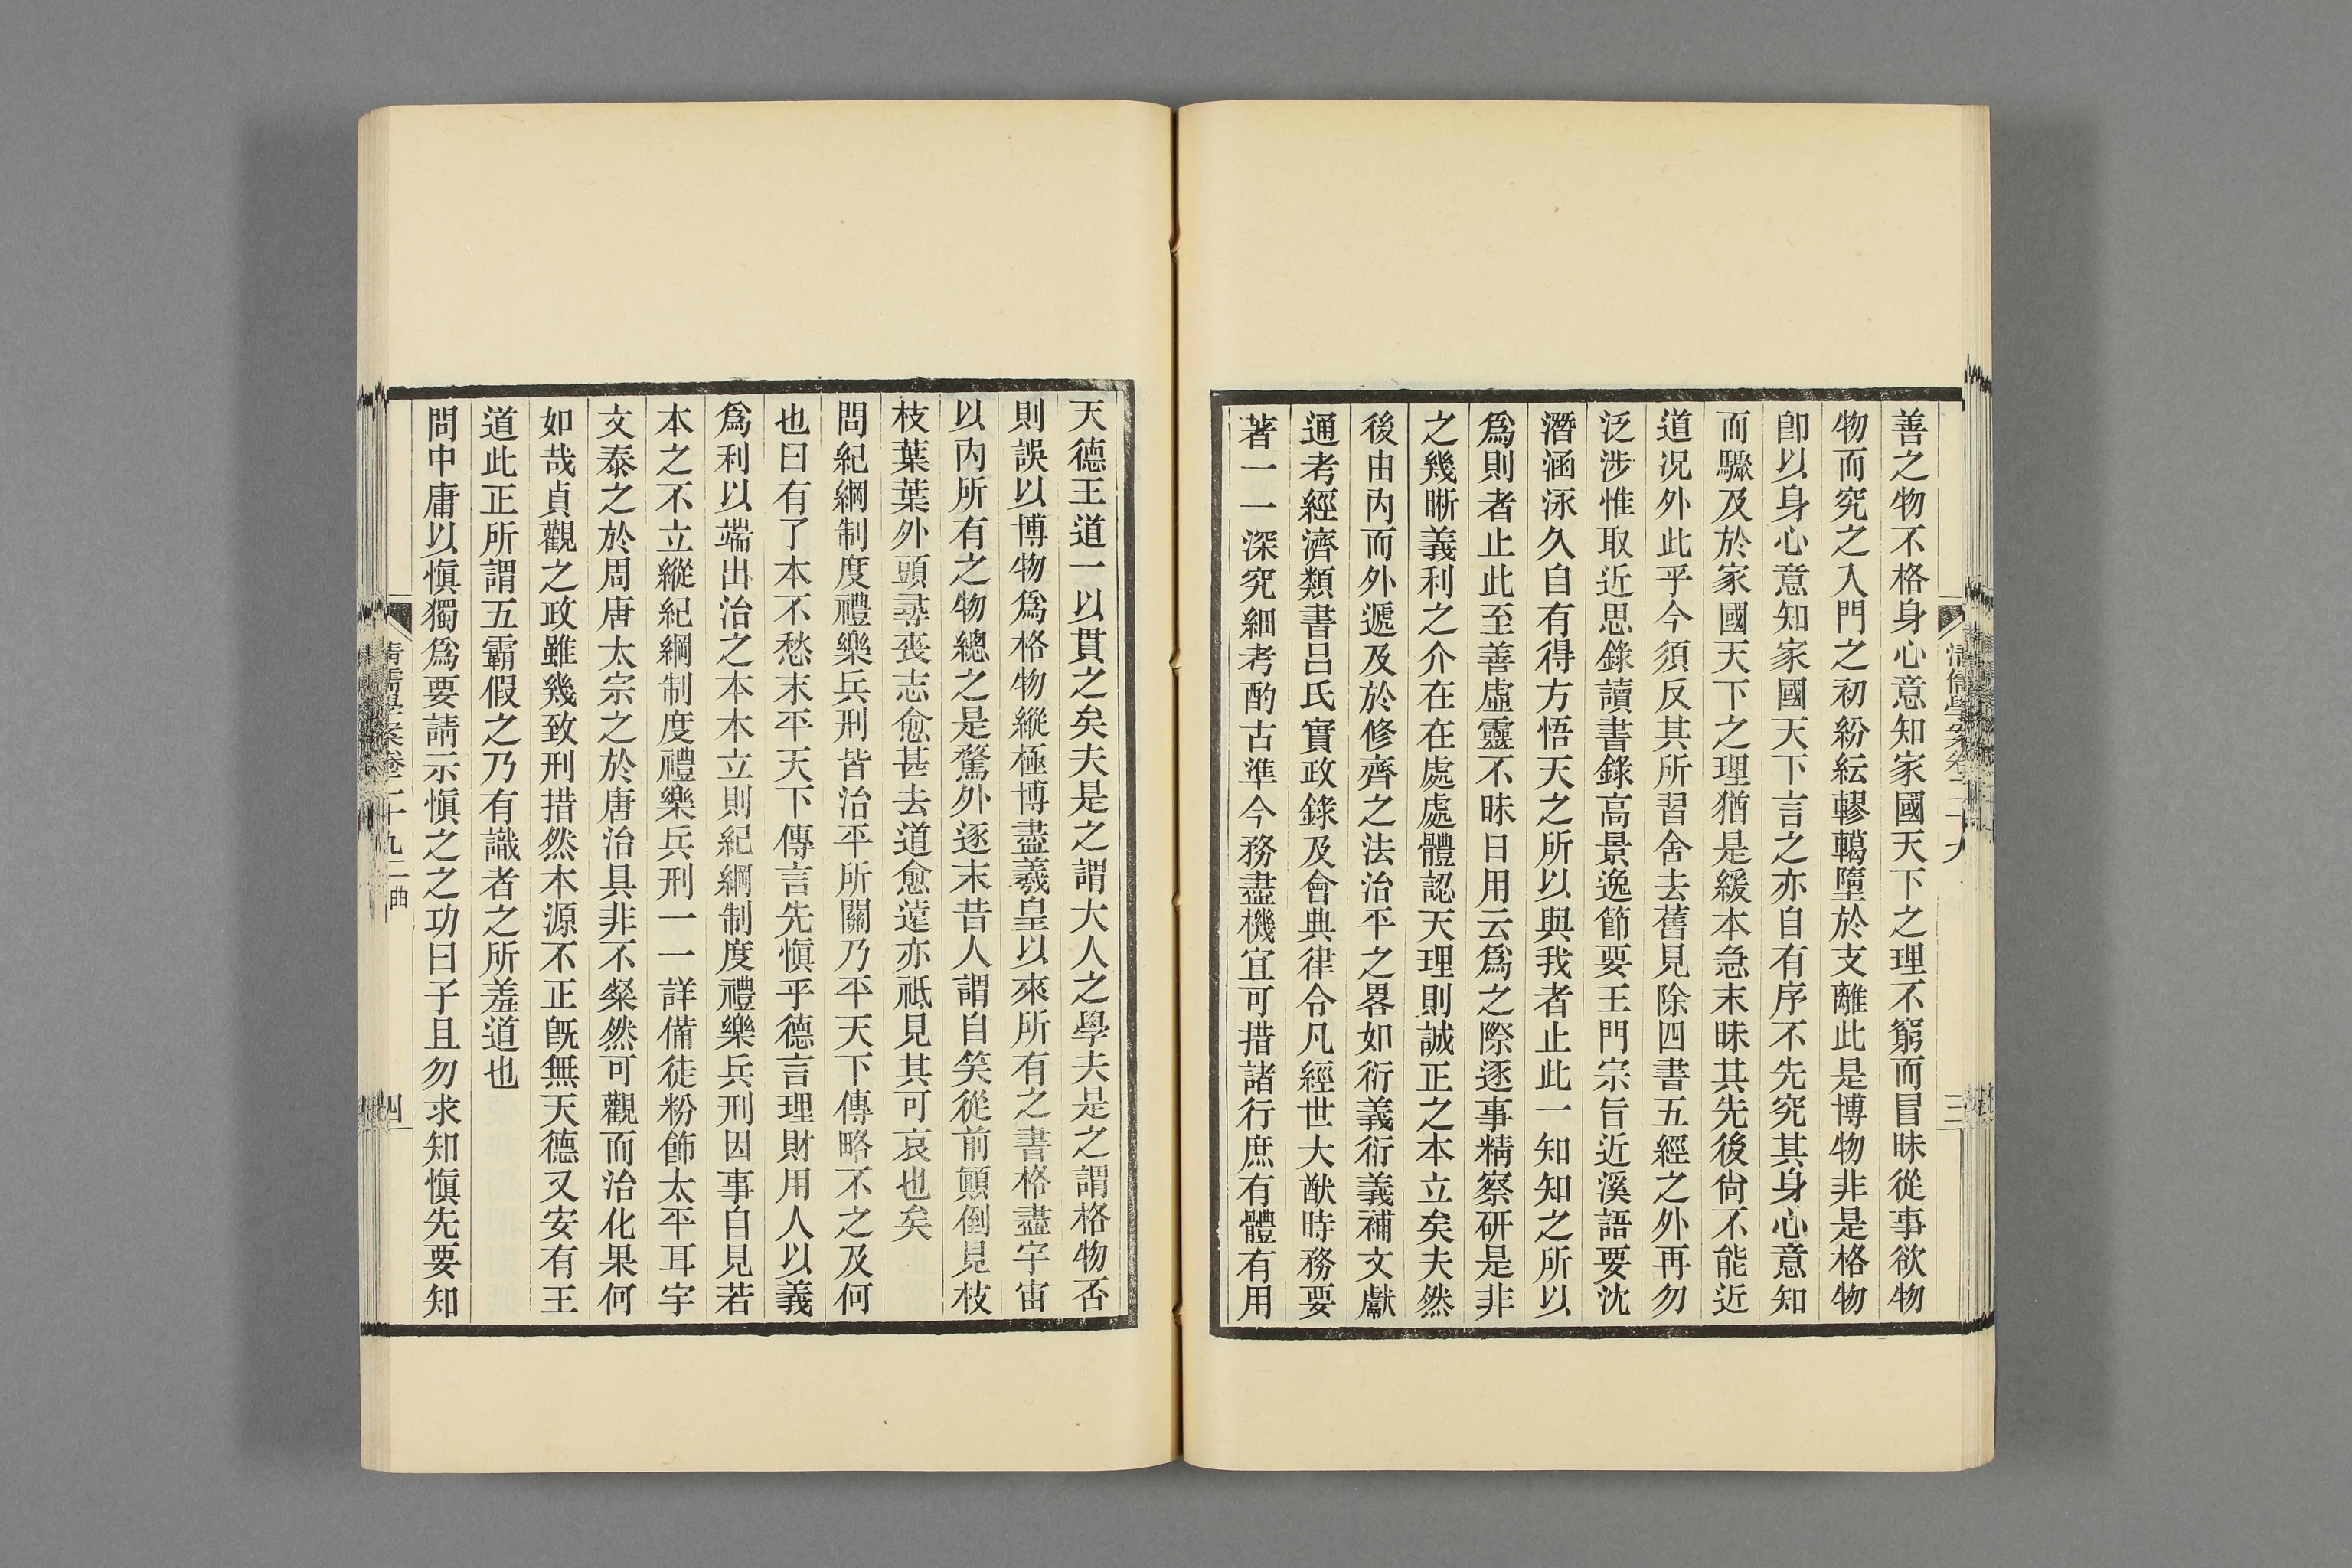 善之物不格身心意知家國天下之理不窮而冒昧從事欲物
物而究之入門之初紛紜轇轕墮於支離此是博物非是格物
卽以身心意知家國天下言之亦自有序不先究其身心意知
而驟及於家國天下之理猶是緩本急末昧其先後尙不能近
道况外此乎今須反其所習舍去舊見除四書五經之外再勿
泛涉惟取近思錄讀書錄高景逸節要王門宗旨近溪語要沈
潛涵泳久自有得方悟天之所以與我者止此一知知之所以
爲則者止此至善虛靈不昧日用云爲之際逐事精察研是非
之幾晰義利之介在在處處體認天理則誠正之本立矣夫然
後由內而外遞及於修齊之法治平之畧如衍義衍義補文獻
通考經濟類書呂氏實政錄及會典律令凡經世大猷時務要
著一一深究細考酌古準今務盡機宜可措諸行庶有體有用
天德王道一以貫之矣夫是之謂大人之學夫是之謂格物否
則誤以博物爲格物縱極博盡羲皇以來所有之書格盡宇宙
以內所有之物總之是騖外逐末昔人謂自笑從前顚倒見枝
枝葉葉外頭尋喪志愈甚去道愈遠亦祗見其可哀也矣
問紀綱制度禮樂兵刑皆治平所關乃平天下傳略不之及何
也曰有了本不愁末平天下傳言先愼乎德言理財用人以義
爲利以端出治之本本立則紀綱制度禮樂兵刑因事自見若
本之不立縱紀綱制度禮樂兵刑一一詳備徒粉飾太平耳宇
文泰之於周唐太宗之於唐治具非不粲然可觀而治化果何
如哉貞觀之政雖幾致刑措然本源不正旣無天德又安有王
道此正所謂五霸假之乃有識者之所羞道也
問中庸以愼獨爲要請示愼之之功曰子且勿求知愼先要知
清儒學案卷二十九二曲
四